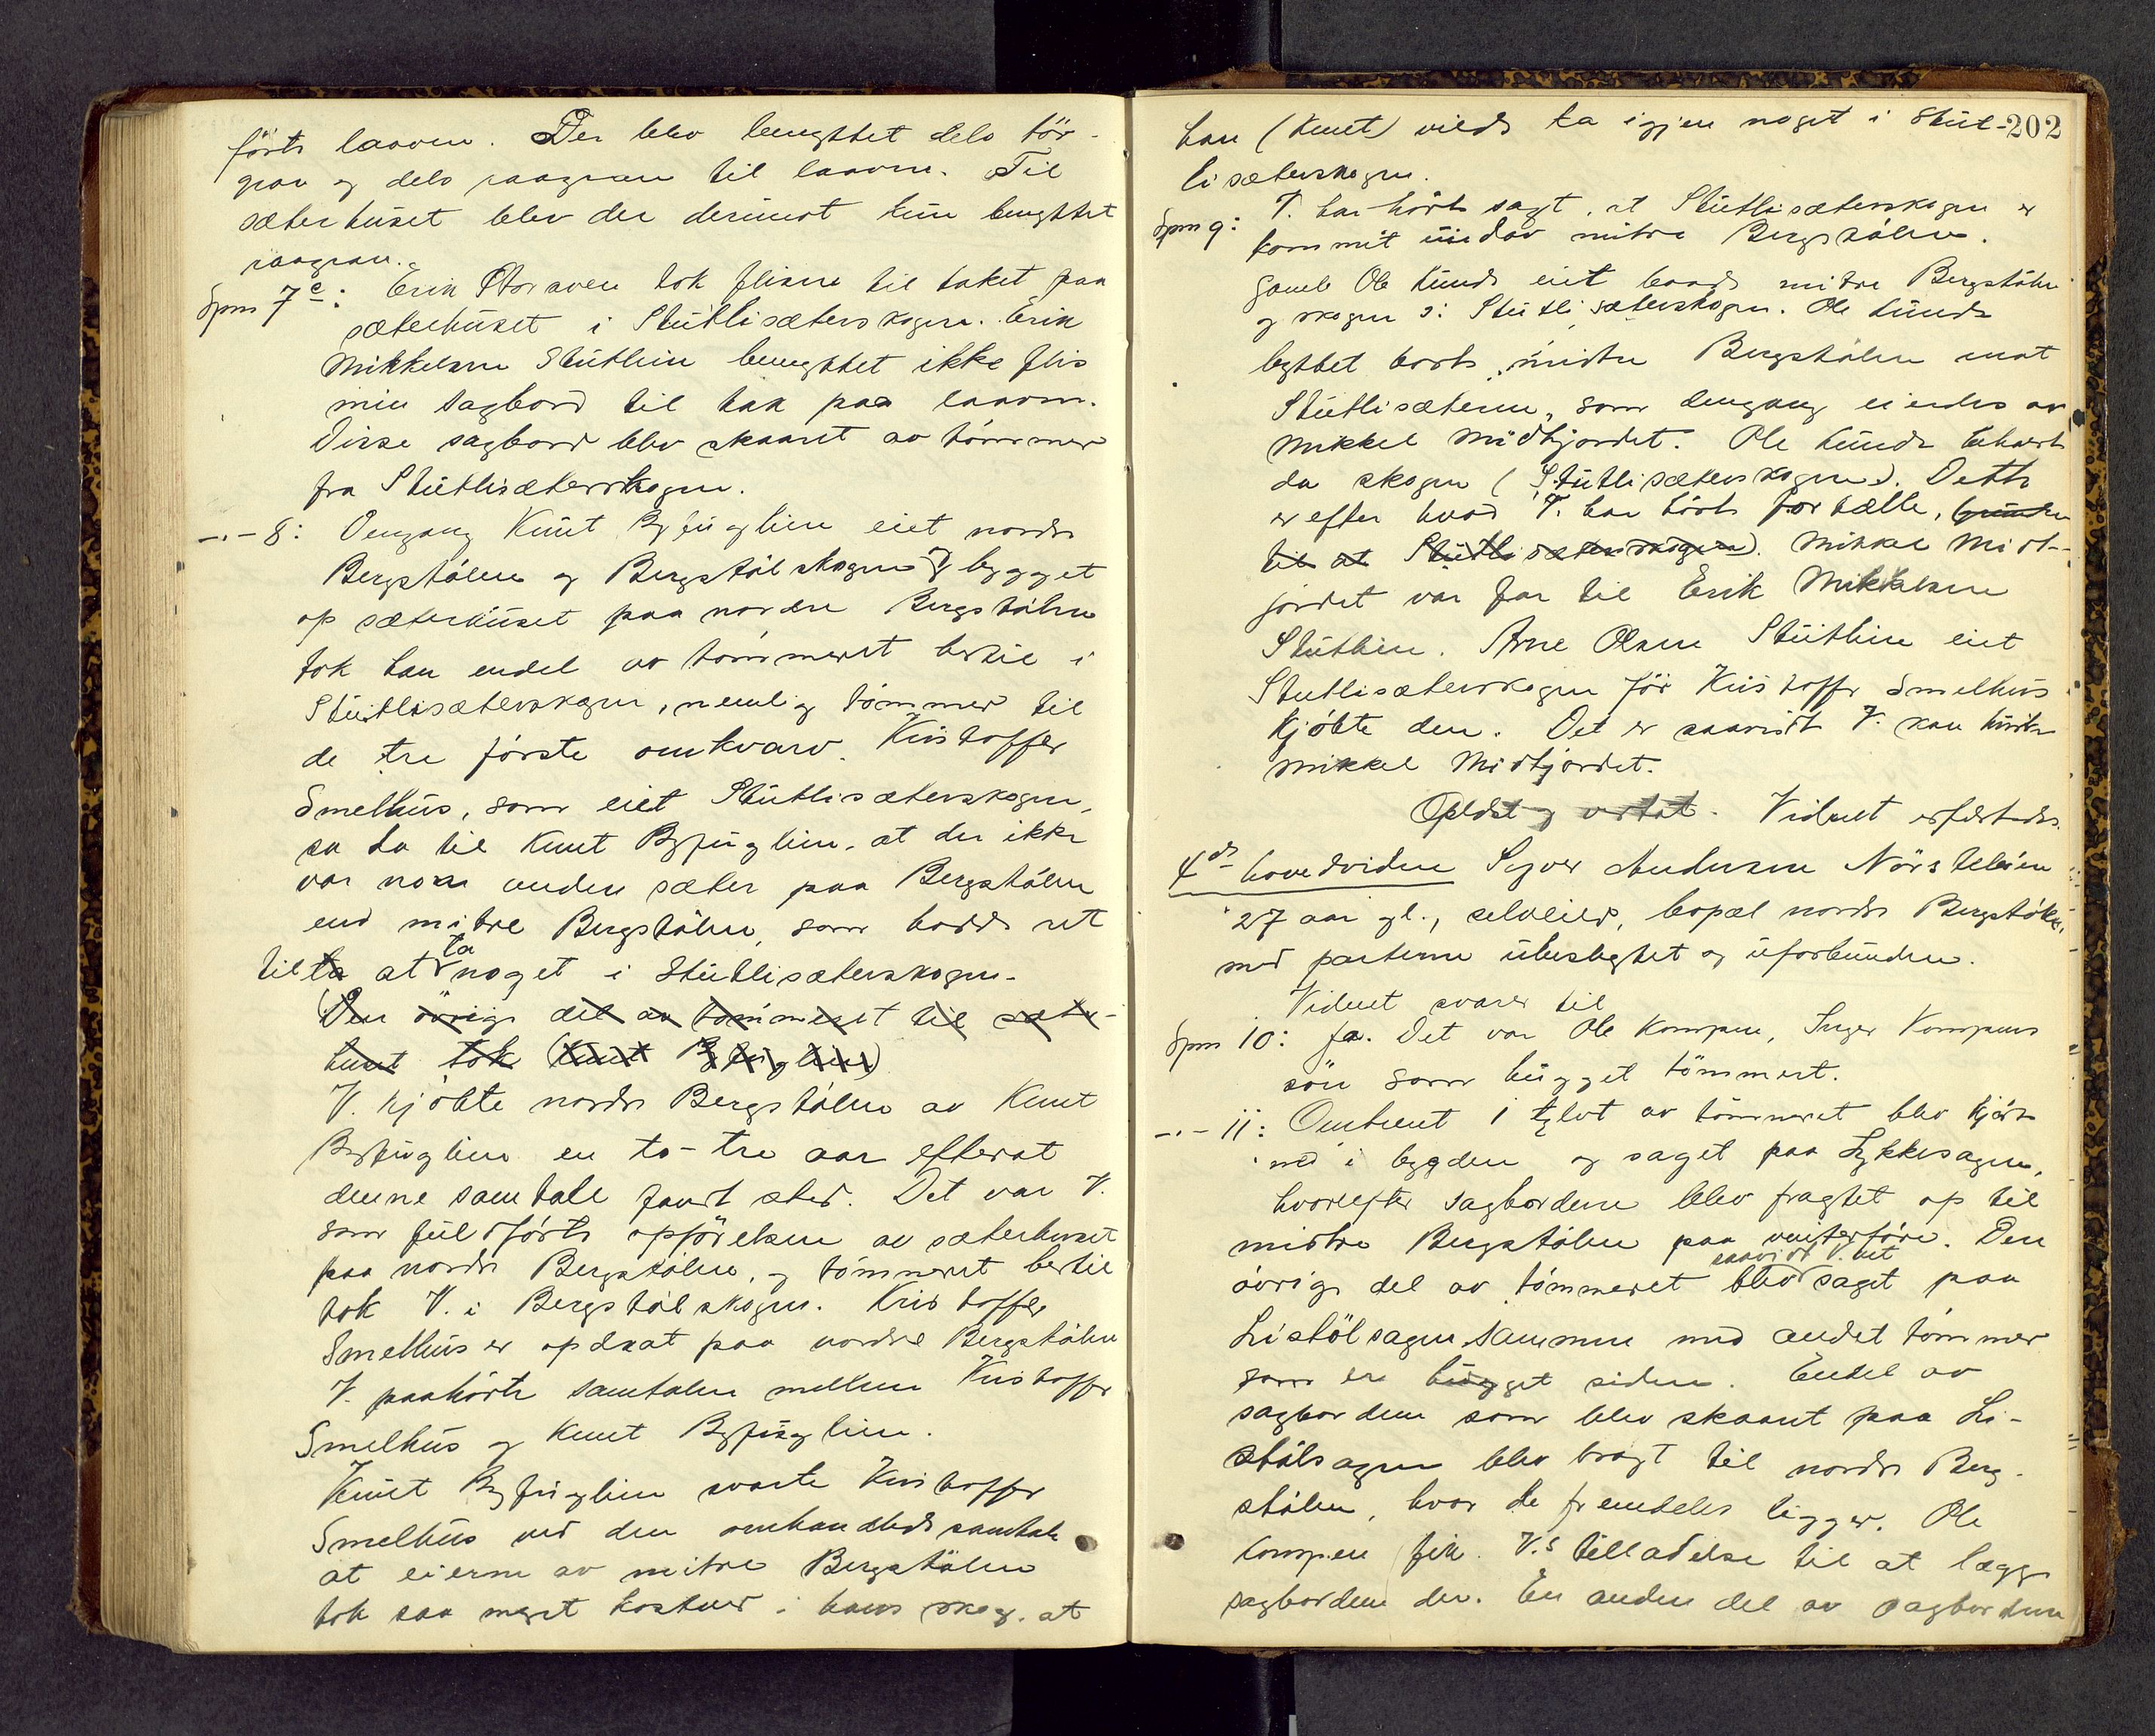 førte laaven. Der blev benyttet dels tör-
gran og dels raagran til laaven. Til
sæterhuset blev der derimot kun benyttet
raagran.
Spm 7c: Erik Storaven tok flisene til taket paa
sæterhuset i Stutlisæterskogen. Erik
Mikkelsen Stutlien benyttet ikke flis
men sagbord til tak paa laaven.
Disse sagbord blev skaaret av tömmer
fra Stutlisæterskogen.
-"-8: Dengang Knut Byfuglien eiet nordre
Bergstölen og Bergstölskogen og bygget
op sæterhuset paa nordre Bergstölen
tok han endel av tömmeret hertil i
Stutlisæterskogen, nemlig tömmer til
de tre förste omkvarv. Kristoffer
Smelhus, som eiet Stutlisæterskogen,
sa da til Knut Byfuglien, at der ikke
var noen anden sæter paa Bergstölen
end mitre Bergstölen, som hadde ret
til ta at ta noget i Stutlisæterskogen.
Den övrige del av tömmeret til sæter-
huset tok (Knut Byfuglien)
V. kjöbte nordre Bergstölen av Knut
Byfuglien en to-tre aar efterat
denne samtale fandt sted. Det var V.
som fuldförte opförelsen av sæterhuset
paa nordre Bergstölen, og tömmeret hertil
tok V. i Bergstölskogen. Kristoffer
Smelhus er opdrat paa nordre Bergstölen
V. paahörte samtalen mellem Kristoffer
Smelhus og Knut Byfuglien.
Knut Byfuglien svarte Kristoffer
Smelhus ved den omhandlede samtale
at eierne av mitre Bergstölen
tok saa meget i hans skog, at
202
han (Knut) vilde ta igjen noget i Stut-
lisæterskogen.
Spm 9: V. har hört sagt, at Stutlisæterskogen er
kommet undav mitre Bergstölen.
Gamle Ole Lunde eiet baade mitre Bergstölen
og skogen ɔ: Stutlisæterskogen. Ole Lunde
byttet borte mitre Bergstölen mot
Stutlisæteren, som dengang eiendes av
Mikkel Midtjordet. Ole Lunde beholdt
da skogen (Stutlisæterskogen). Dette
er efter hvad V. har hört fortælle,
til at Stutlisæterskogen). Mikkel Midt-
jordet var far til Erik Mikkelsen
Stutlien. Arne Olsen Stutlien eiet
Stutlisæterskogen för Kristoffer Smelhus
kjöbte den. Det er saavidt V. kan huske
Mikkel Midtjordet.
Oplæst og vedtat. Vidnet
4de hovedvidne Sygver Andersen Nörstelien
27 aar gl., selveier, bopæl nordre Bergstölen,
med parterne ubeslegtet og uforbunden.
Vidnet svarer til
Spm 10: Ja. Det var Ole Kompen, Inger Kompens
sön som hugget tömmeret.
-"-11: Omtrent 1 tylvt av tömmeret blev kjört
ned i bygden og saget paa Lykkjesagen,
hvorefter sagbordene blev fragtet op til
mitre Bergstölen paa vinterföre. Den
övrige del av tömmeret blev saavidt V. vet saget paa
Listölsagen sammen med andet tömmer
som er hugget siden. Endel av
sagbordene som blev skaaret paa Li-
stölsagen blev bragt til nordre Berg-
stölen, hvor de fremdeles ligger. Ole
Kompen fik V.s tilladelse til at lægge
sagbordene der. En anden del av sagbordene